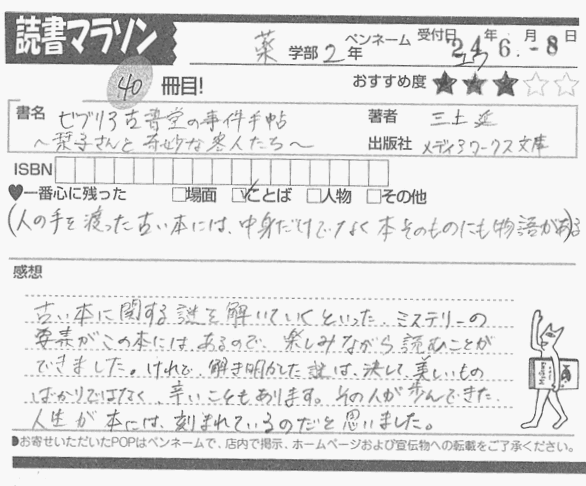 読書マラソン
薬 学部 2 年 ペンネーム 受付日 24年 6.月-8日
40 冊目!
おすすめ度 ★★★☆☆
書名 ビブリア古書堂の事件手帖
～栞子さんと奇妙な客人たち～
著者 三上 延
出版社 メディアワークス文庫
ISBN
♥一番心に残った □場面 ☑ことば □人物 □その他
(人の手を渡った古い本には、中身だけでなく本そのものにも物語がある
感想
古い本に関する謎を解いていくといった、ミステリーの
要素がこの本には、あるので、楽しみながら読むことが
できました。けれど、解き明かした謎は、決して、美しいもの
ばかりではなく、辛いこともあります。その人が歩んできた
人生が本には、刻まれているのだと思いました。
●お寄せいただいたPOPはペンネームで、店内で掲示、ホームページおよび宣伝物への転載をご了承ください。